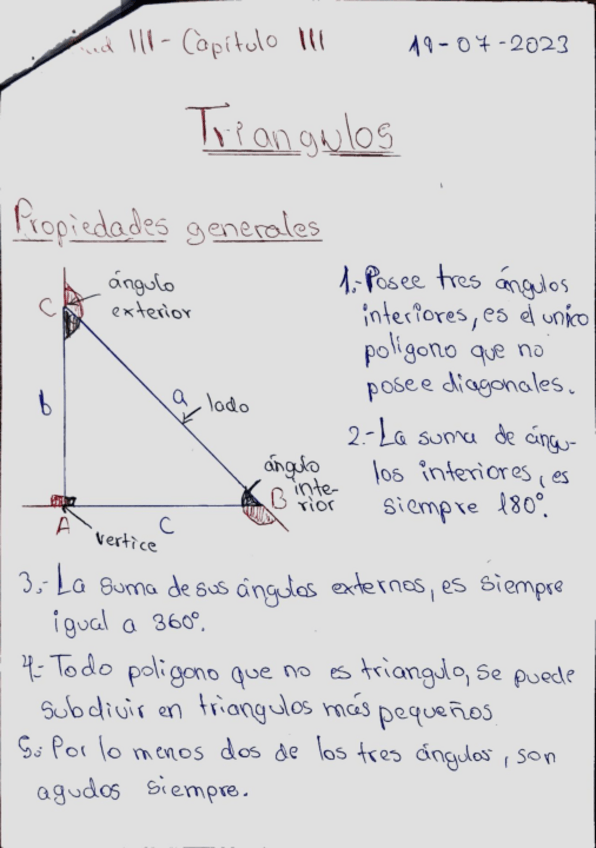 III - Capítulo III
19-07-2023
Triangulos
Propiedades generales
ángulo
exterior
C
b
a
lado
ángulo
inte-
rior
B
A
c
vertice
1.- Posee tres ángulos
interiores, es el unico
polígono que no
posee diagonales.
2.- La suma de ángu-
los interiores, es
siempre 180°.
3.- La suma de sus ángulos externos, es siempre
igual a 360°.
4.- Todo poligono que no es triangulo, se puede
subdivir en triangulos más pequeños
5.- Por lo menos dos de los tres ángulos, son
agudos siempre.